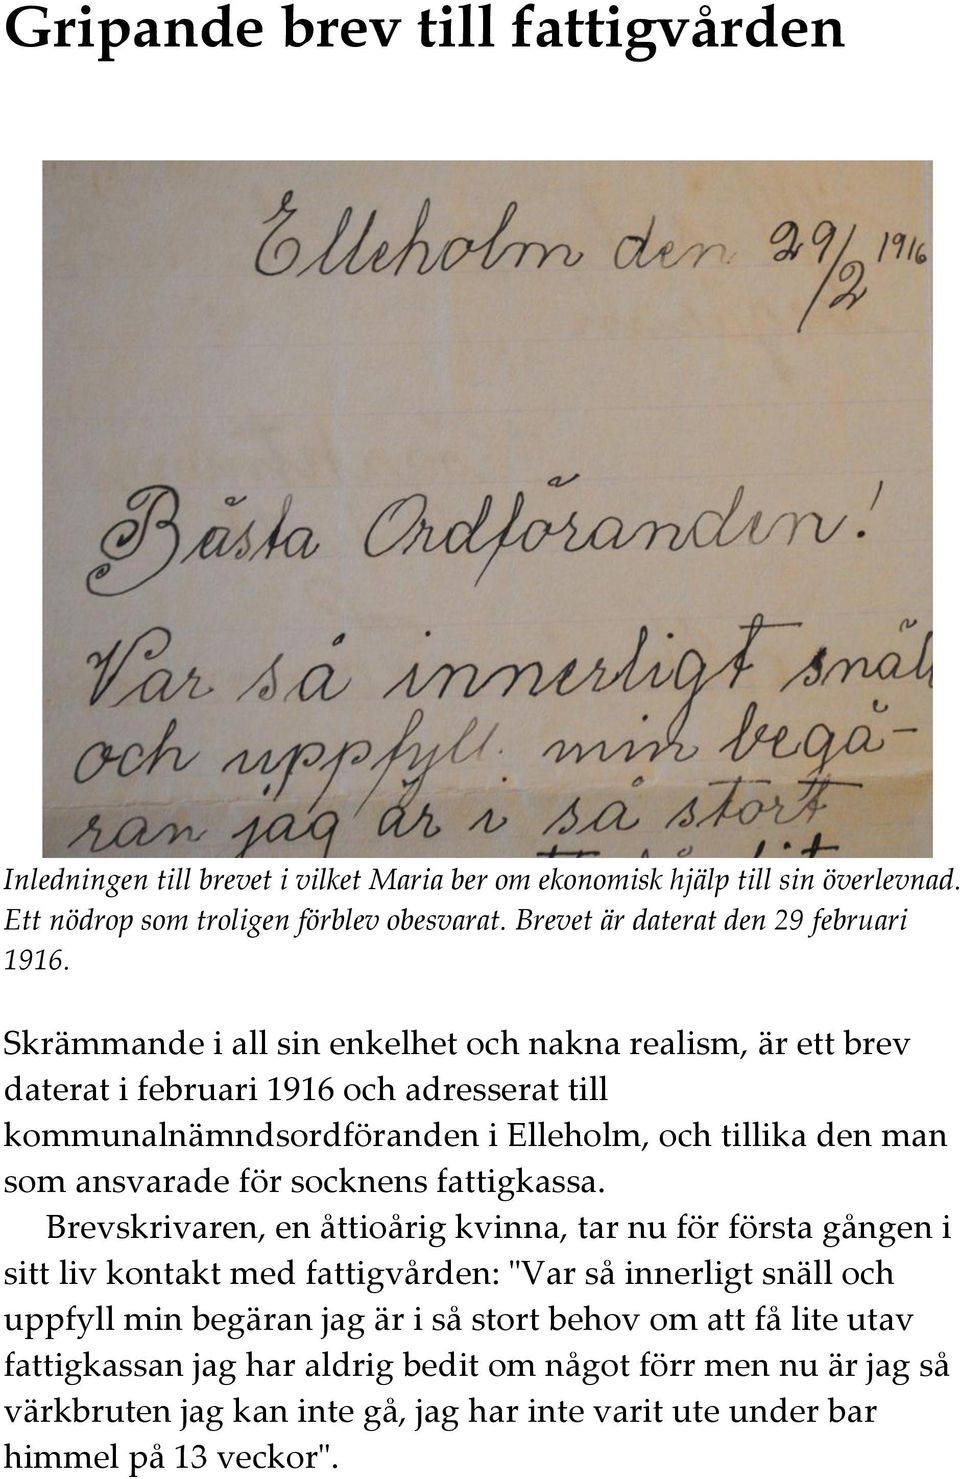 Gripande brev till fattigvården
Elleholm den 29/2 1916
Bästa Ordföranden!
Var så innerligt snäll
och uppfyll min begä-
ran jag är i så stort
Inledningen till brevet i vilket Maria ber om ekonomisk hjälp till sin överlevnad.
Ett nödrop som troligen förblev obesvarat. Brevet är daterat den 29 februari
1916.
Skrämmande i all sin enkelhet och nakna realism, är ett brev
daterat i februari 1916 och adresserat till
kommunalnämndsordföranden i Elleholm, och tillika den man
som ansvarade för socknens fattigkassa.
Brevskrivaren, en åttioårig kvinna, tar nu för första gången i
sitt liv kontakt med fattigvården: "Var så innerligt snäll och
uppfyll min begäran jag är i så stort behov om att få lite utav
fattigkassan jag har aldrig bedit om något förr men nu är jag så
värkbruten jag kan inte gå, jag har inte varit ute under bar
himmel på 13 veckor".